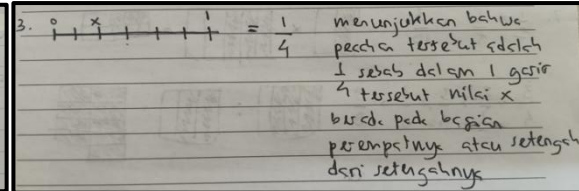 3. 0 x 1 = 1/4 menunjukkan bahwa
pecahan tersebut adalah
1 sebab dalam 1 garis
4 tersebut nilai x
berada pada bagian
perempatnya atau setengah
dari setengahnya